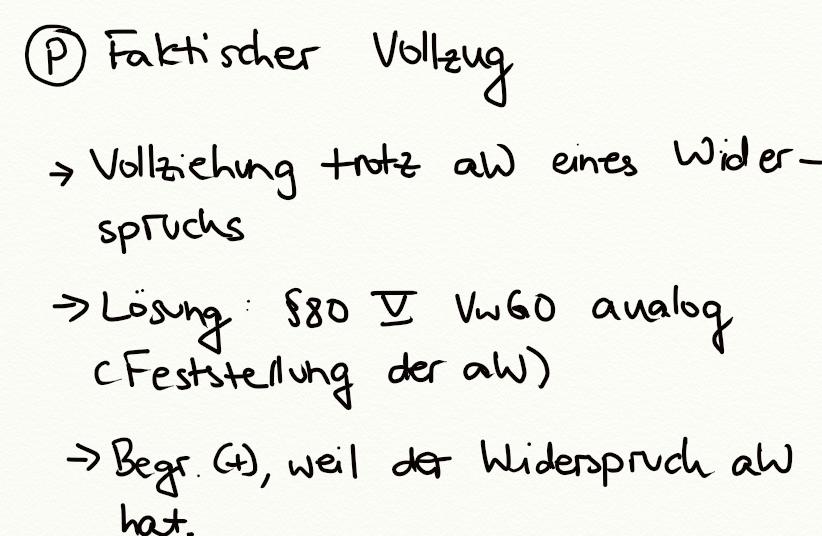 Ⓟ Faktischer Vollzug
→ Vollziehung trotz aW eines Wider-
spruchs
→ Lösung: §80 V VwGO analog
(Feststellung der aW)
→ Begr. (+), weil der Widerspruch aW
hat.